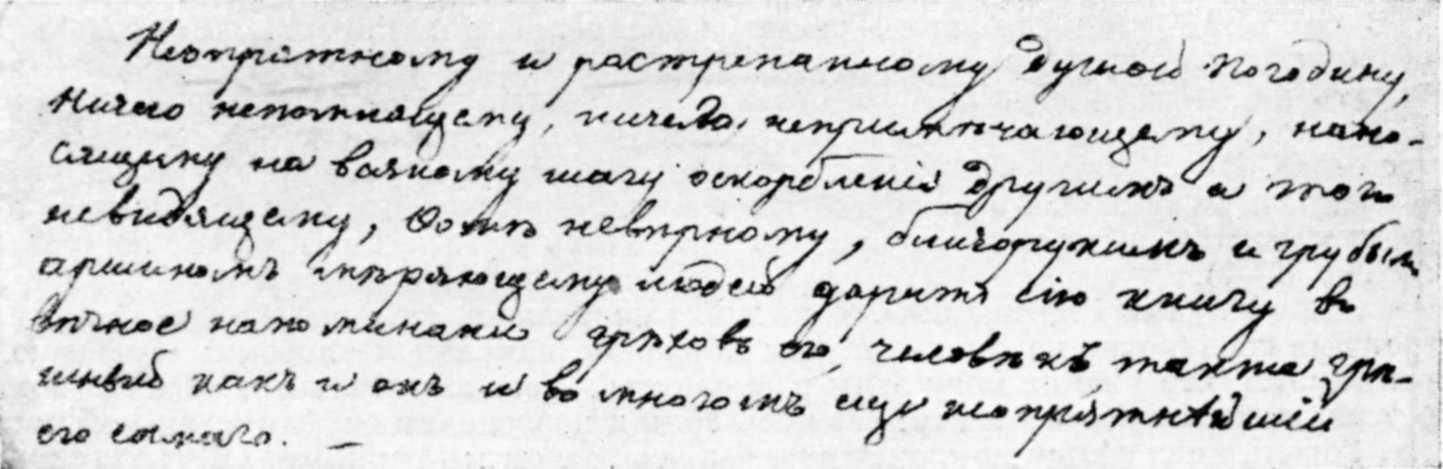 Неопрятному и растрепанному душой Погодину,
ничего непомнящему, ничего непримѣчающему, нано-
сящему на всякому шагу оскорбленія другимъ и того
невидящему, Ѳомѣ невѣрному, близорукимъ и грубымъ
аршиномъ мѣряющему людей даритъ сію книгу въ
вѣчное напоминание грѣховъ его, человѣкъ также грѣ-
шный какъ и онъ и во многомъ еще неопрятнѣйшій
его самаго. —